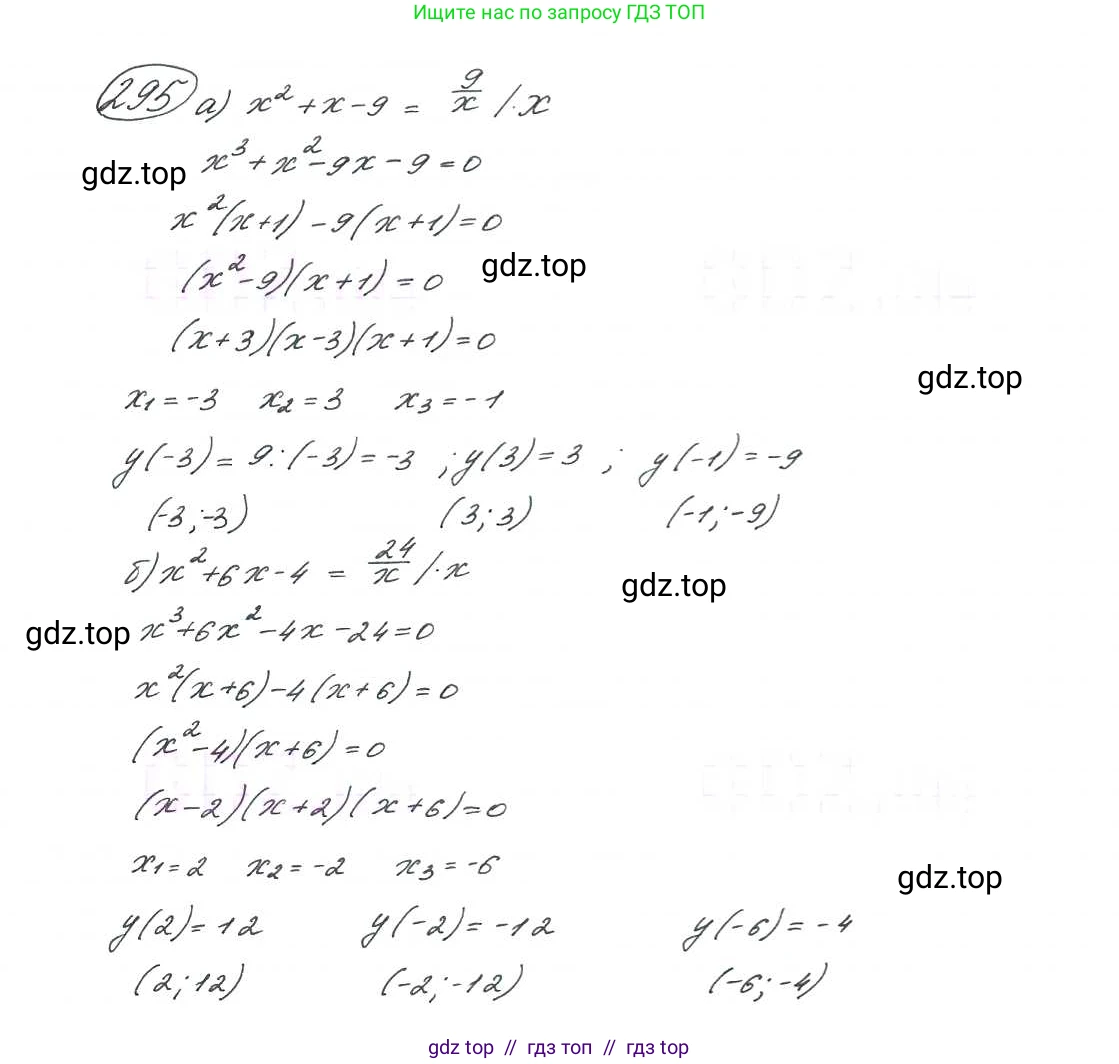 Ищите нас по запросу ГДЗ ТОП
295 а) x² + x - 9 = 9/x /·x
x³ + x² - 9x - 9 = 0
gdz.top
x²(x+1) - 9(x+1) = 0
(x² - 9)(x+1) = 0
gdz.top
(x+3)(x-3)(x+1) = 0
gdz.top
x₁ = -3 x₂ = 3 x₃ = -1
y(-3) = 9:(-3) = -3 ; y(3) = 3 ; y(-1) = -9
(-3; -3) (3; 3) (-1; -9)
б) x² + 6x - 4 = 24/x /·x
gdz.top
gdz.top
x³ + 6x² - 4x - 24 = 0
x²(x+6) - 4(x+6) = 0
(x² - 4)(x+6) = 0
(x-2)(x+2)(x+6) = 0
x₁ = 2 x₂ = -2 x₃ = -6
gdz.top
y(2) = 12 y(-2) = -12 y(-6) = -4
(2; 12) (-2; -12) (-6; -4)
gdz top // гдз топ // гдз top